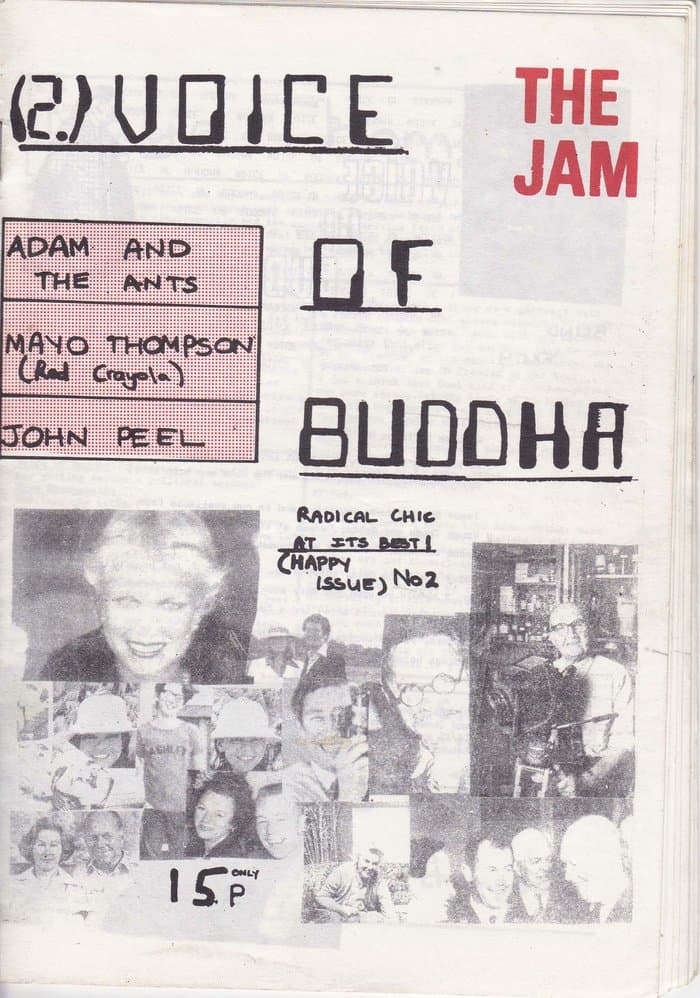 (2.) VOICE
THE
JAM
ADAM AND
THE ANTS
OF
MAYO THOMPSON
(Red Crayola)
JOHN PEEL
BUDDHA
RADICAL CHIC
AT ITS BEST!
(HAPPY
ISSUE) No 2
ASHLEY
15 ONLY
P